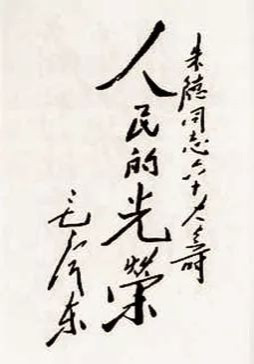 朱德同志六十大寿
人民的光榮
毛泽东